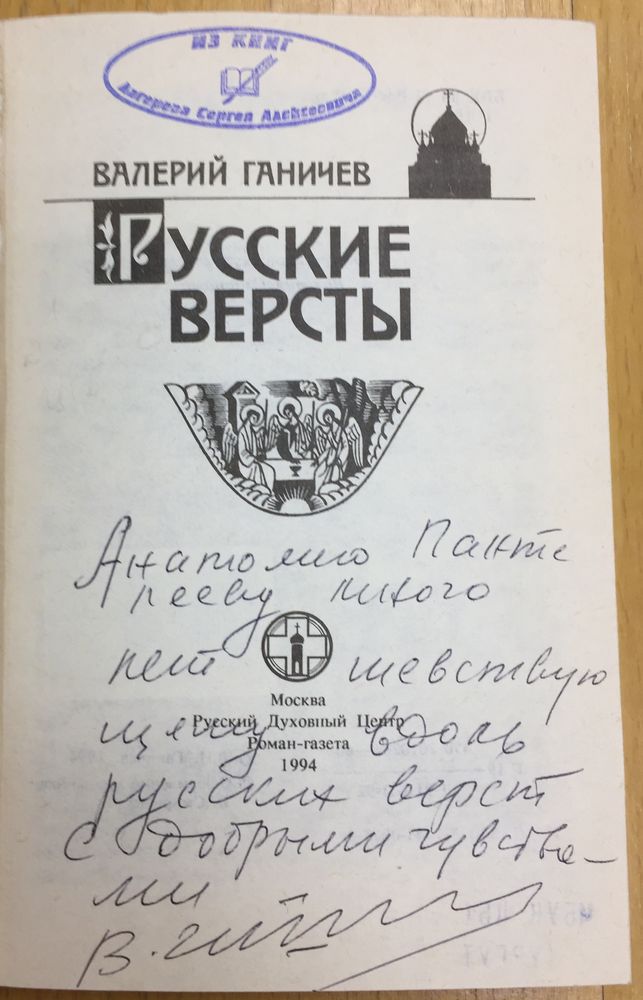 ИЗ КНИГ
Лагерева Сергея Алексеевича
ВАЛЕРИЙ ГАНИЧЕВ
РУССКИЕ
ВЕРСТЫ
Анатолию Панте
лееву много
лет шевствую
Москва
щему вдоль
Русский Духовный Центр
Роман-газета
1994
русских верст
с добрыми чувства–
ми
В.